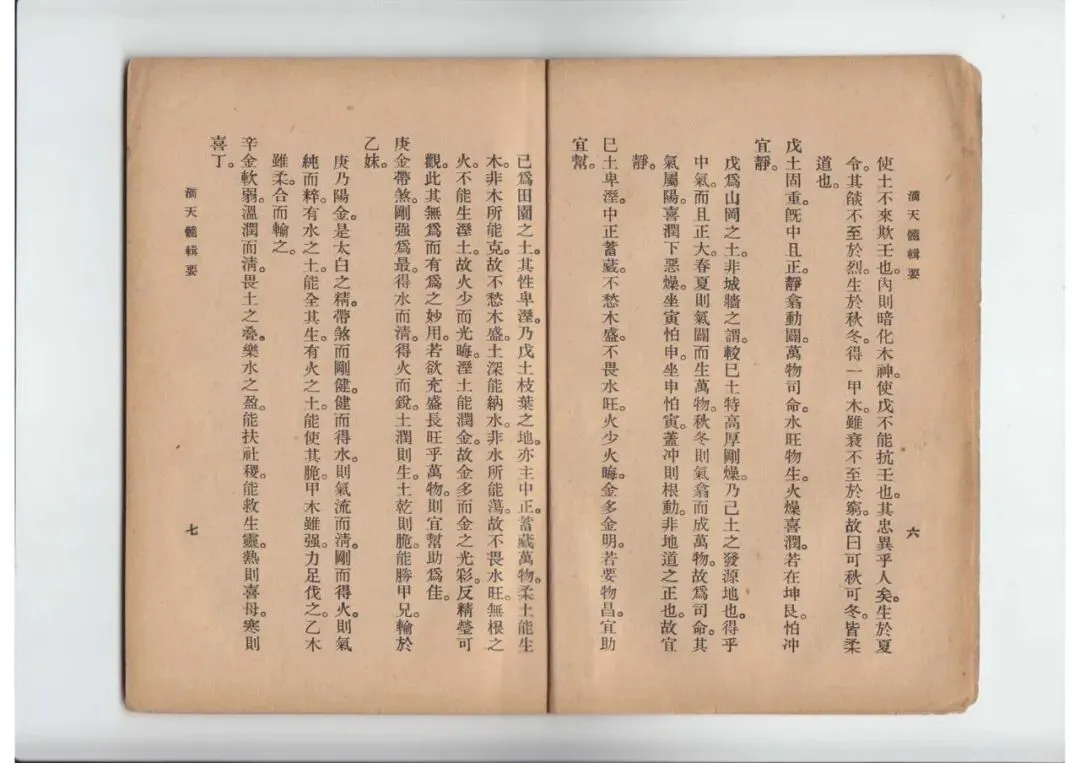 滴天髓輯要
六
使土不來欺壬也。內則暗化木神。使戊不能抗壬也。其忠異乎人矣。生於夏
令。其燄不至於烈。生於秋冬。得一甲木。雖衰不至於窮。故曰可秋可冬。皆柔
道也。
戊土固重。旣中且正。靜翕動闢。萬物司命。水旺物生。火燥喜潤。若在坤艮。怕冲
宜靜。
戊爲山岡之土。非城牆之謂。較巳土特高厚剛燥。乃己土之發源地也。得乎
中氣。而且正大。春夏則氣闢而生萬物。秋冬則氣翕而成萬物。故爲司命。其
氣屬陽。喜潤下。惡燥。坐寅怕申。坐申怕寅。蓋冲則根動。非地道之正也。故宜
靜。
巳土卑溼。中正蓄藏。不愁木盛。不畏水旺。火少火晦。金多金明。若要物昌。宜助
宜幫。
己爲田園之土。其性卑溼。乃戊土枝葉之地。亦主中正。蓄藏萬物。柔土能生
木。非木所能克。故不愁木盛。土深能納水。非水所能蕩。故不畏水旺。無根之
火。不能生溼土。故火少而光晦。溼土能潤金。故金多而金之光彩。反精瑩可
觀。此其無爲而有爲之妙用。若欲充盛長旺乎萬物。則宜幫助爲佳。
庚金帶煞。剛强爲最。得水而清。得火而銳。土潤則生。土乾則脆。能勝甲兄。輸於
乙妹。
庚乃陽金。是太白之精。帶煞而剛健。健而得水。則氣流而清。剛而得火。則氣
純而粹。有水之土。能全其生。有火之土。能使其脆。甲木雖强。力足伐之。乙木
雖柔。合而輸之。
辛金軟弱。溫潤而清。畏土之叠。樂水之盈。能扶社稷。能救生靈。熱則喜母。寒則
喜丁。
滴天髓輯要
七